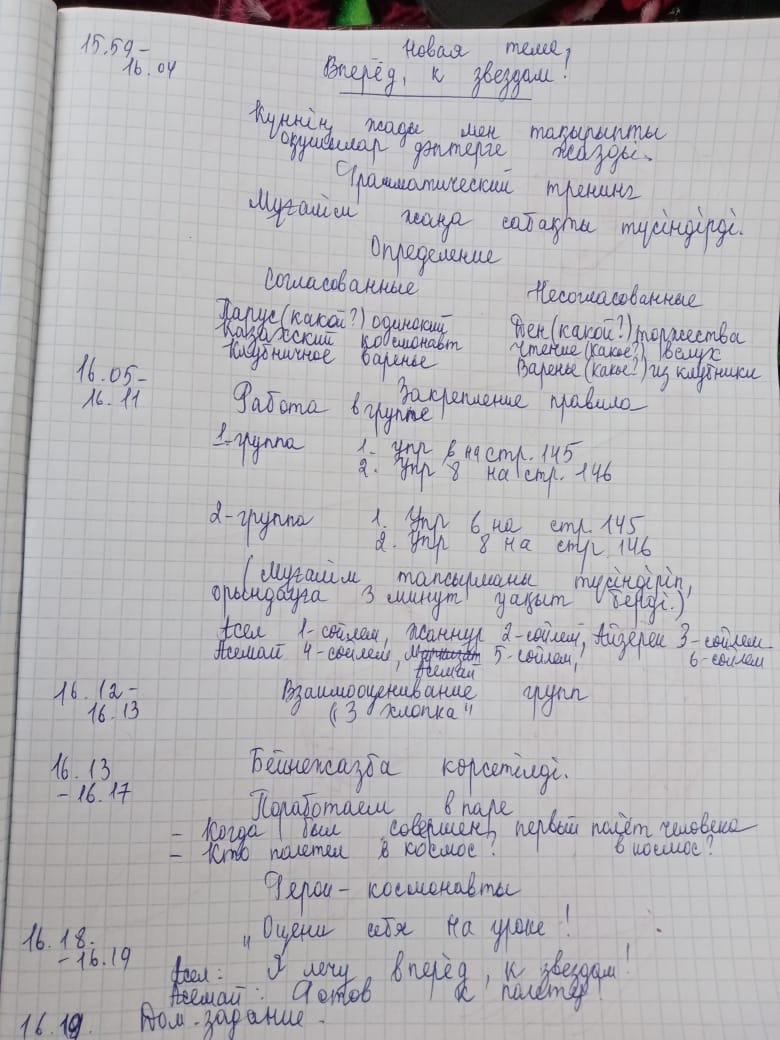 15.59-
16.04
Новая тема,
Вперёд, к звездам!
Күннің жады мен тақырыпты
оқушылар дәптерге жазды.
Грамматический тренинг
Мұғалім жаңа сабақты түсіндірді.
Определение
Согласованные Несогласованные
Парус (какой?) одинокий Ден (какой?) торжества
Казахский космонавт Чтение (какое?) вслух
Клубничное варенье Варенье (какое?) из клубники
16.05-
16.11
Закрепление правила
Работа в группе
1-группа 1. упр 6 на стр. 145
2. Упр 8 на стр. 146
2-группа 1. Упр 6 на стр. 145
2. Упр 8 на стр 146
(Мұғалім тапсырманы түсіндіріп,
орындауға 3 минут уақыт берді.)
Асел 1-сөйлем, Жаннур 2-сөйлем, Айзереи 3-сөйлем
Асемай 4-сөйлем, 5-сөйлем, 6-сөйлем
Асемай
16.12-
16.13
Взаимооценивание групп
"3 хлопка"
16.13
-16.17
Бейнежазба көрсетілді.
Поработаем в паре
- Когда был совершен первый полёт человека
в космос?
- Кто полетел в космос?
Герои-космонавты
16.18.
-16.19
"Оцени себя на уроке!
Асел: Я лечу вперёд, к звездам!
Асемай: Готов к полету
16.19. Дом. задание.